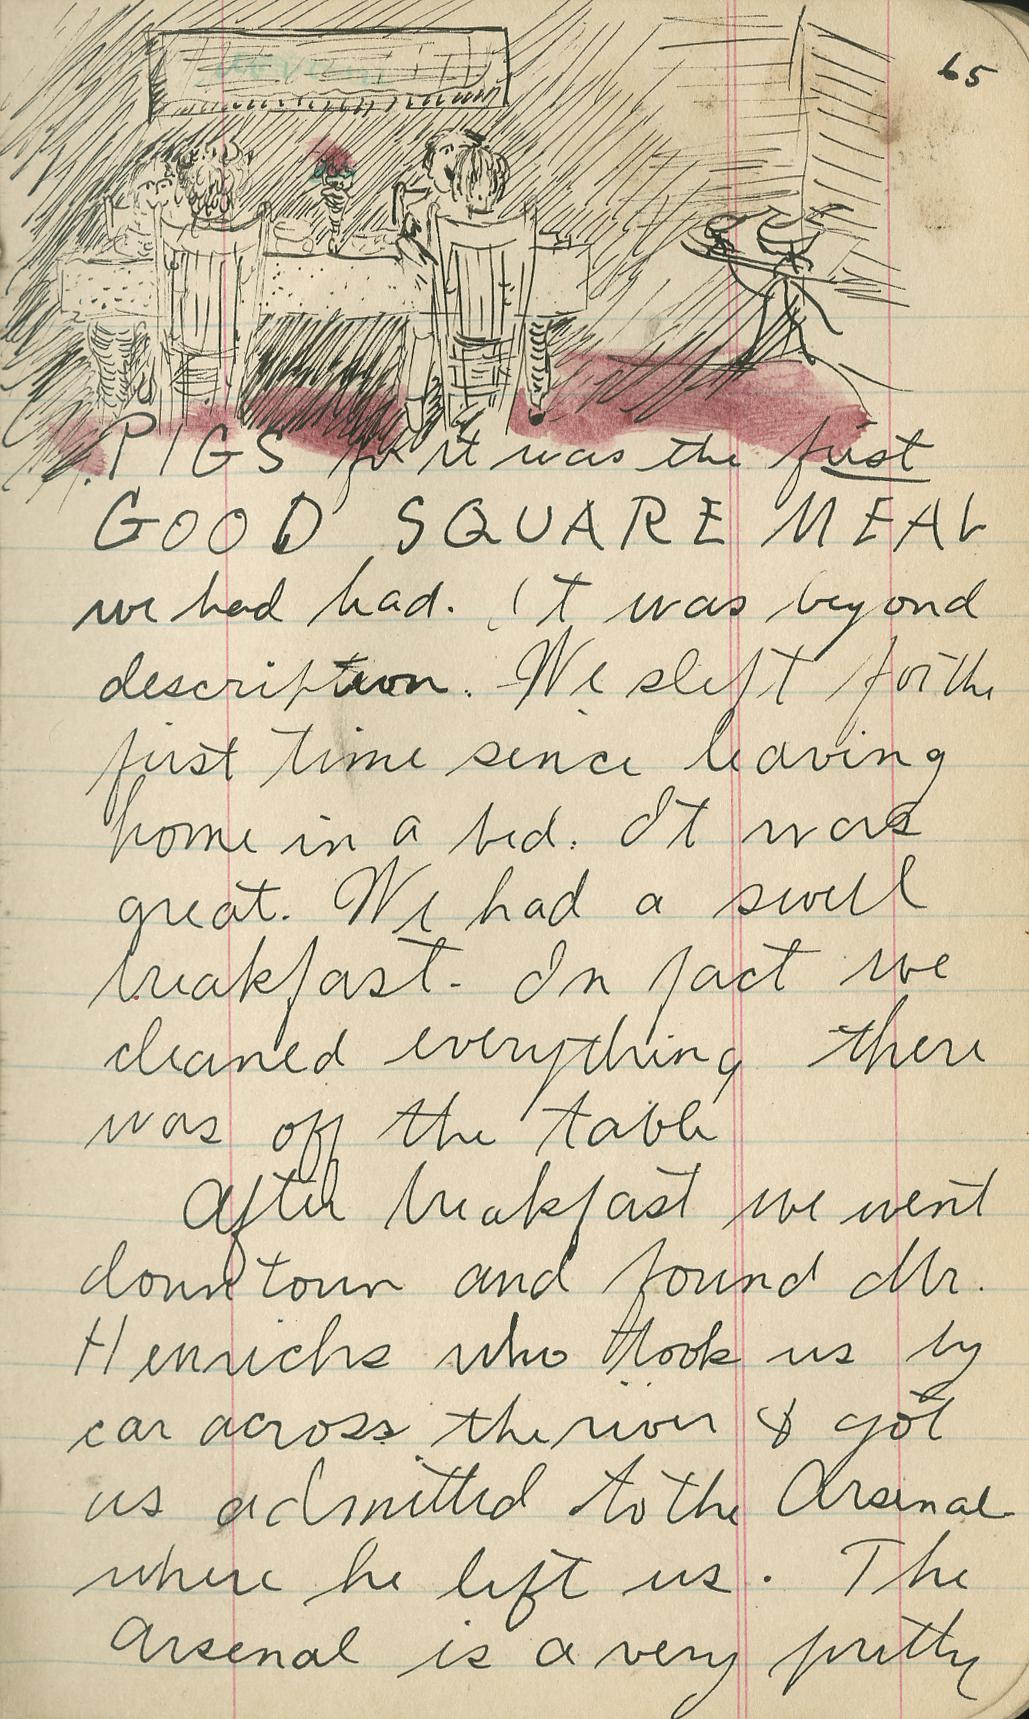 65
PIGS for it was the first
GOOD SQUARE MEAL
we had had. It was beyond
description. We slept for the
first time sence leaving
home in a bed. It was
great. We had a swell
breakfast. In fact we
cleaned everything there
was off the table
After breakfast we went
down town and found Mr.
Henrichs who took us by
car across the river & got
us admitted to the Arsenal
where he left us. The
Arsenal is a very pretty